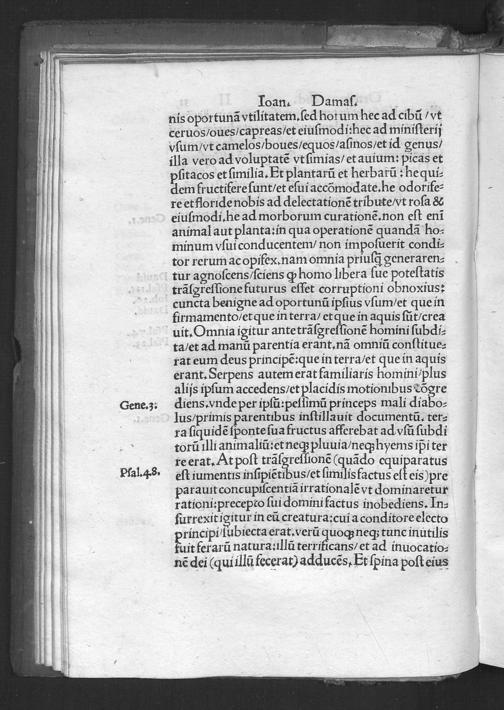 Ioan. Damaſ.
nis oportunā vtilitatem. ſed horum hec ad cibū / vt
ceruos/oues/capreas/et eiuſmodi: hec ad miniſterij
vſum/vt camelos/boues/equos/aſinos/et id genus/
illa vero ad voluptatē vt ſimias/ et auium: picas et
pſitacos et ſimilia. Et plantarū et herbarū : he qui⸗
dem fructifere ſunt/et eſui accōmodate. he odorife⸗
re et floride nobis ad delectationē tribute/vt roſa &
eiuſmodi. he ad morborum curationē. non eſt enī
animal aut planta: in qua operationē quandā ho⸗
minum vſui conducentem/ non impoſuerit condi⸗
tor rerum ac opifex. nam omnia priuſꝗ̄ generaren⸗
tur agnoſcens/ſciens ꝙ homo libera ſue poteſtatis
trāſgreſſione futurus eſſet corruptioni obnoxius:
cuncta benigne ad oportunū ipſius vſum/et que in
firmamento/et que in terra/ et que in aquis ſūt/crea
uit. Omnia igitur ante trāſgreſſionē homini ſubdi⸗
ta/et ad manū parentia erant. nā omniū conſtitue⸗
rat eum deus principē: que in terra/et que in aquis
erant. Serpens autem erat familiaris homini/plus
alijs ipſum accedens/et placidis motionibus cōgre
Gene.3. diens. vnde per ipſū: peſſimū princeps mali diabo⸗
lus/primis parentibus inſtillauit documentū. ter⸗
ra ſiquidē ſponte ſua fructus afferebat ad vſū ſubdi
torū illi animaliū: et neqꝫ pluuia/neqꝫ hyems ip̄i ter
re erat. At poſt trāſgreſſionē (quādo equiparatus
Pſal.48. eſt iumentis inſipiētibus/et ſimilis factus eſt eis) pre
parauit concupiſcentiā irrationalē vt dominaretur
rationi: precepto ſui domini factus inobediens. In⸗
ſurrexit igitur in eū creatura: cui a conditore electo
principi ſubiecta erat. verū quoqꝫ neqꝫ tunc inutilis
fuit ferarū natura: illū terrificans/ et ad inuocatio⸗
nē dei (qui illū fecerat) adducēs. Et ſpina poſt eius